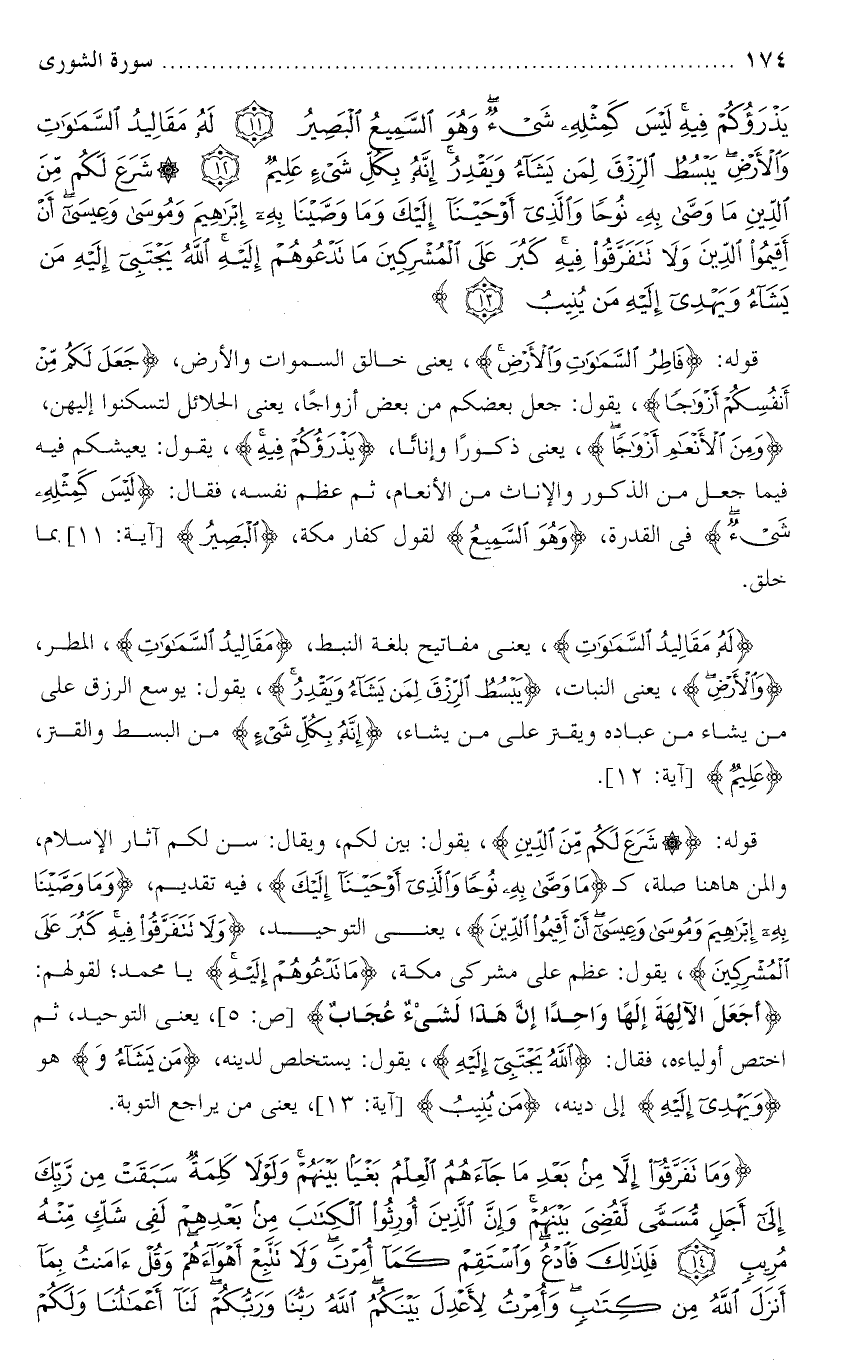 ١٧٤ ........................................................................ سورة الشورى
يَذْرَؤُكُمْ فِيهِ ۚ لَيْسَ كَمِثْلِهِۦ شَىْءٌ ۖ وَهُوَ ٱلسَّمِيعُ ٱلْبَصِيرُ ﴿١١﴾ لَهُۥ مَقَالِيدُ ٱلسَّمَٰوَٰتِ
وَٱلْأَرْضِ ۖ يَبْسُطُ ٱلرِّزْقَ لِمَن يَشَآءُ وَيَقْدِرُ ۚ إِنَّهُۥ بِكُلِّ شَىْءٍ عَلِيمٌ ﴿١٢﴾ ۞ شَرَعَ لَكُم مِّنَ
ٱلدِّينِ مَا وَصَّىٰ بِهِۦ نُوحًا وَٱلَّذِىٓ أَوْحَيْنَآ إِلَيْكَ وَمَا وَصَّيْنَا بِهِۦٓ إِبْرَٰهِيمَ وَمُوسَىٰ وَعِيسَىٰٓ ۖ أَنْ
أَقِيمُوا۟ ٱلدِّينَ وَلَا تَتَفَرَّقُوا۟ فِيهِ ۚ كَبُرَ عَلَى ٱلْمُشْرِكِينَ مَا نَدْعُوهُمْ إِلَيْهِ ۚ ٱللَّهُ يَجْتَبِىٓ إِلَيْهِ مَن
يَشَآءُ وَيَهْدِىٓ إِلَيْهِ مَن يُنِيبُ ﴿١٣﴾ ﴾
قوله: ﴿فَاطِرُ ٱلسَّمَٰوَٰتِ وَٱلْأَرْضِ ۚ﴾، يعنى خالق السموات والأرض، ﴿جَعَلَ لَكُم مِّنْ
أَنفُسِكُمْ أَزْوَٰجًا﴾، يقول: جعل بعضكم من بعض أزواجًا، يعنى الحلائل لتسكنوا إليهن،
﴿وَمِنَ ٱلْأَنْعَٰمِ أَزْوَٰجًا ۖ﴾، يعنى ذكورًا وإناثًا، ﴿يَذْرَؤُكُمْ فِيهِ ۚ﴾، يقول: يعيشكم فيه
فيما جعل من الذكور والإناث من الأنعام، ثم عظم نفسه، فقال: ﴿لَيْسَ كَمِثْلِهِۦ
شَىْءٌ ۖ﴾ فى القدرة، ﴿وَهُوَ ٱلسَّمِيعُ﴾ لقول كفار مكة، ﴿ٱلْبَصِيرُ﴾ [آية: ١١] بما
خلق.
﴿لَهُۥ مَقَالِيدُ ٱلسَّمَٰوَٰتِ﴾، يعنى مفاتيح بلغة النبط، ﴿مَقَالِيدُ ٱلسَّمَٰوَٰتِ﴾، المطر،
﴿وَٱلْأَرْضِ ۖ﴾، يعنى النبات، ﴿يَبْسُطُ ٱلرِّزْقَ لِمَن يَشَآءُ وَيَقْدِرُ ۚ﴾، يقول: يوسع الرزق على
من يشاء من عباده ويقتر على من يشاء، ﴿إِنَّهُۥ بِكُلِّ شَىْءٍ﴾ من البسط والقتر،
﴿عَلِيمٌ﴾ [آية: ١٢].
قوله: ﴿۞ شَرَعَ لَكُم مِّنَ ٱلدِّينِ﴾، يقول: بين لكم، ويقال: سن لكم آثار الإسلام،
والمن هاهنا صلة، كـ ﴿مَا وَصَّىٰ بِهِۦ نُوحًا وَٱلَّذِىٓ أَوْحَيْنَآ إِلَيْكَ﴾، فيه تقديم، ﴿وَمَا وَصَّيْنَا
بِهِۦٓ إِبْرَٰهِيمَ وَمُوسَىٰ وَعِيسَىٰٓ ۖ أَنْ أَقِيمُوا۟ ٱلدِّينَ﴾، يعنى التوحيد، ﴿وَلَا تَتَفَرَّقُوا۟ فِيهِ ۚ كَبُرَ عَلَى
ٱلْمُشْرِكِينَ﴾، يقول: عظم على مشركى مكة، ﴿مَا نَدْعُوهُمْ إِلَيْهِ ۚ﴾ يا محمد؛ لقولهم:
﴿أجَعَلَ الآلِهَةَ إِلَهًا وَاحِدًا إِنَّ هَذَا لَشَىْءٌ عُجَابٌ﴾ [ص: ٥]، يعنى التوحيد، ثم
اختص أولياءه، فقال: ﴿ٱللَّهُ يَجْتَبِىٓ إِلَيْهِ﴾، يقول: يستخلص لدينه، ﴿مَن يَشَآءُ وَ﴾ هو
﴿وَيَهْدِىٓ إِلَيْهِ﴾ إلى دينه، ﴿مَن يُنِيبُ﴾ [آية: ١٣]، يعنى من يراجع التوبة.
﴿وَمَا تَفَرَّقُوٓا۟ إِلَّا مِنۢ بَعْدِ مَا جَآءَهُمُ ٱلْعِلْمُ بَغْيًۢا بَيْنَهُمْ ۚ وَلَوْلَا كَلِمَةٌ سَبَقَتْ مِن رَّبِّكَ
إِلَىٰٓ أَجَلٍ مُّسَمًّى لَّقُضِىَ بَيْنَهُمْ ۚ وَإِنَّ ٱلَّذِينَ أُورِثُوا۟ ٱلْكِتَٰبَ مِنۢ بَعْدِهِمْ لَفِى شَكٍّ مِّنْهُ
مُرِيبٍ ﴿١٤﴾ فَلِذَٰلِكَ فَٱدْعُ ۖ وَٱسْتَقِمْ كَمَآ أُمِرْتَ ۖ وَلَا تَتَّبِعْ أَهْوَآءَهُمْ ۖ وَقُلْ ءَامَنتُ بِمَآ
أَنزَلَ ٱللَّهُ مِن كِتَٰبٍ ۖ وَأُمِرْتُ لِأَعْدِلَ بَيْنَكُمُ ۖ ٱللَّهُ رَبُّنَا وَرَبُّكُمْ ۖ لَنَآ أَعْمَٰلُنَا وَلَكُمْ